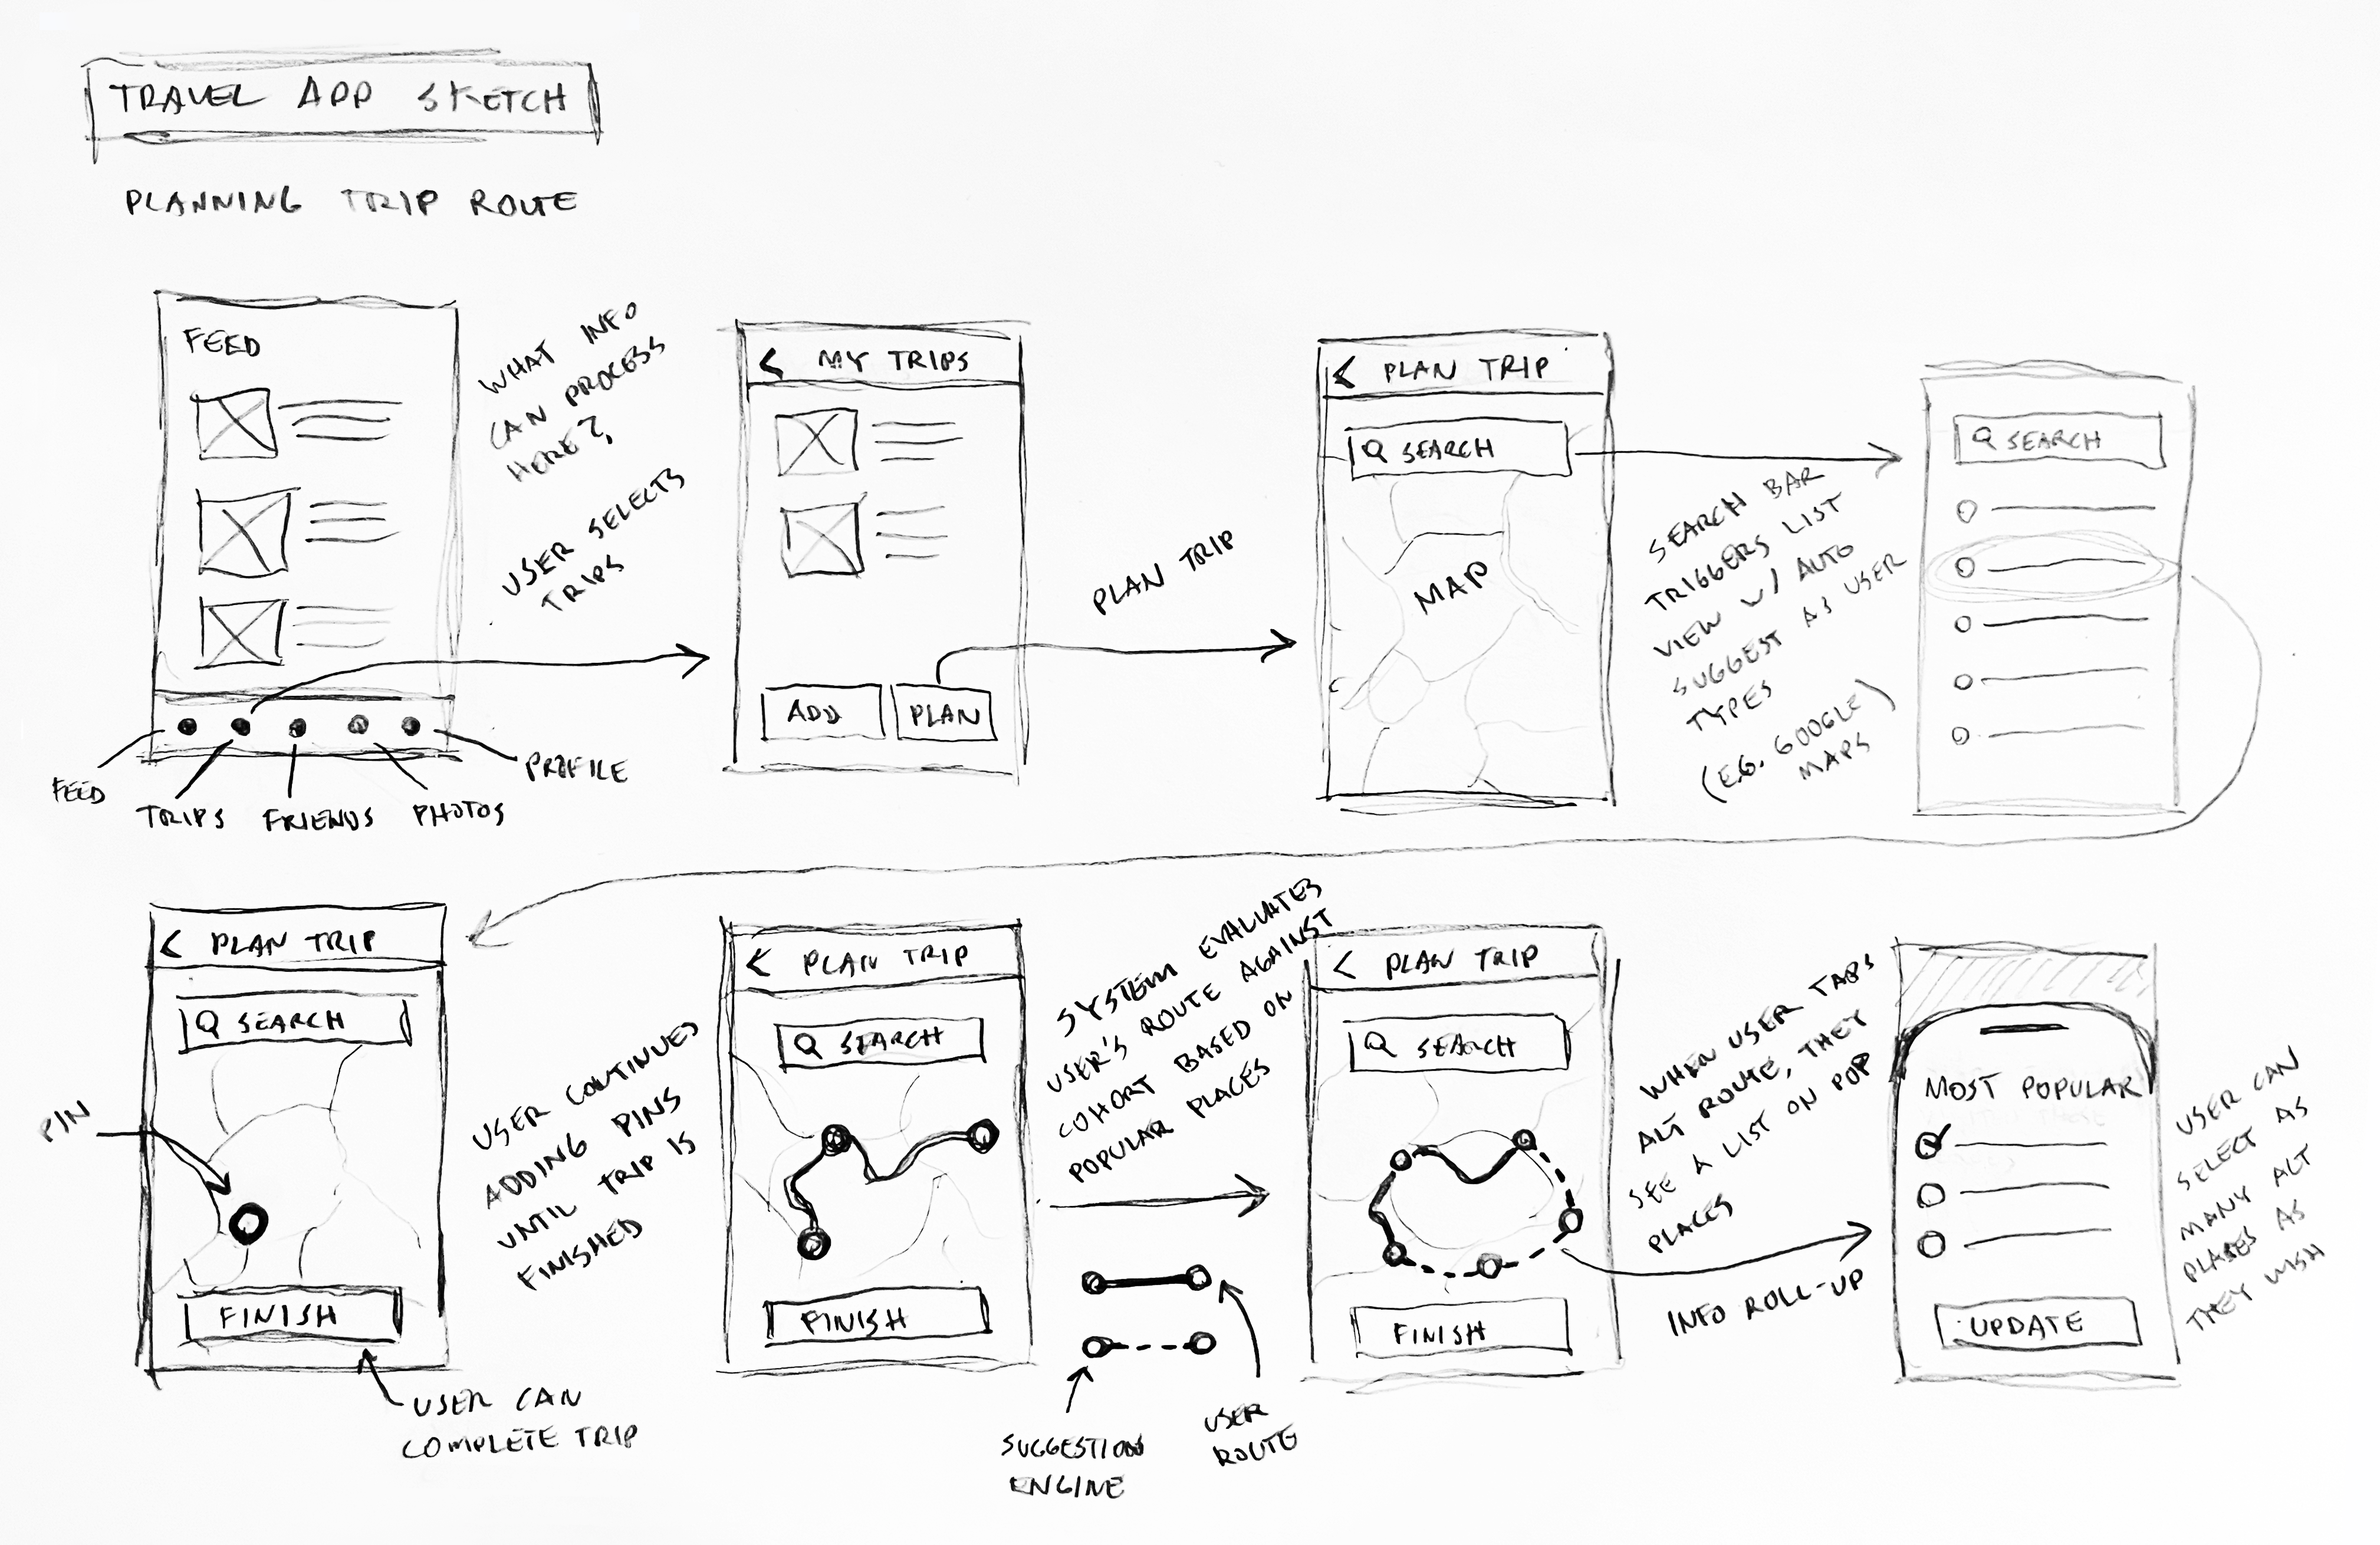 TRAVEL APP SKETCH
PLANNING TRIP ROUTE
FEED
FEED
TRIPS
FRIENDS
PHOTOS
PROFILE
WHAT INFO
CAN PROCESS
HERE?
USER SELECTS
TRIPS
< MY TRIPS
ADD
PLAN
PLAN TRIP
< PLAN TRIP
SEARCH
MAP
SEARCH BAR
TRIGGERS LIST
VIEW W/ AUTO
SUGGEST AS USER
TYPES
(E.G. GOOGLE)
MAPS
SEARCH
< PLAN TRIP
SEARCH
PIN
FINISH
USER CAN
COMPLETE TRIP
USER CONTINUES
ADDING PINS
UNTIL TRIP IS
FINISHED
< PLAN TRIP
SEARCH
FINISH
SYSTEM EVALUATES
USER'S ROUTE AGAINST
COHORT BASED ON
POPULAR PLACES
SUGGESTION
ENGINE
USER
ROUTE
< PLAN TRIP
SEARCH
FINISH
WHEN USER TABS
ALT ROUTE, THEY
SEE A LIST ON POP
PLACES
INFO ROLL-UP
MOST POPULAR
UPDATE
USER CAN
SELECT AS
MANY ALT
PLACES AS
THEY WISH